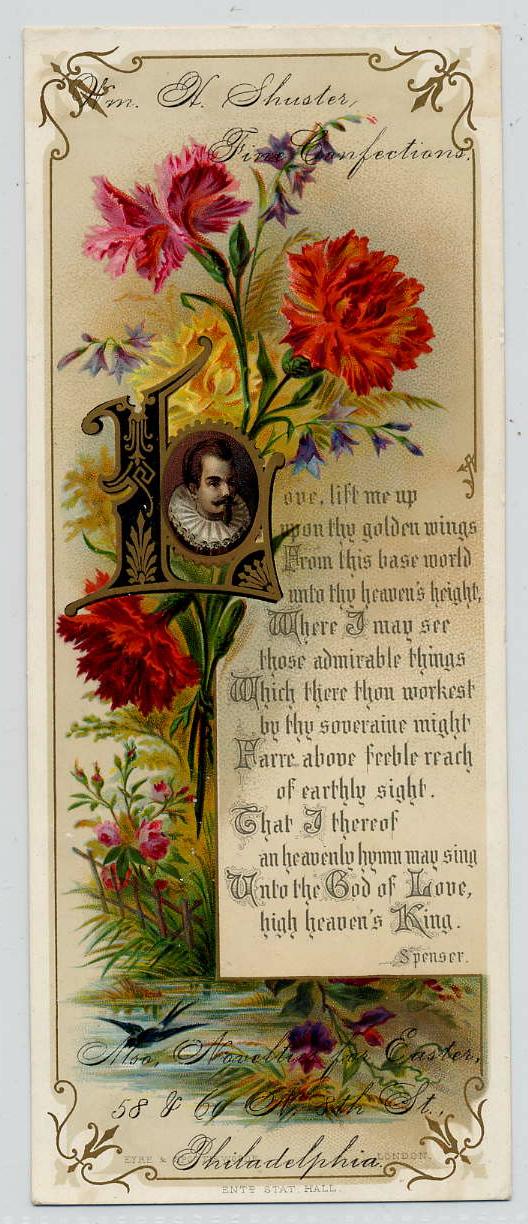 Wm. H. Shuster,
Fine Confections.
Love, lift me up
upon thy golden wings
From this base world
unto thy heaven's height,
Where I may see
those admirable things
Which there thou workest
by thy soveraine might
Farre above feeble reach
of earthly sight.
That I thereof
an heavenly hymn may sing
Unto the God of Love,
high heaven's King.
Spenser.
Also, Novelties for Easter,
58 & 60 N. 8th St.,
Philadelphia.
EYRE & SPOTTISWOODE LONDON.
ENTD STAT. HALL.